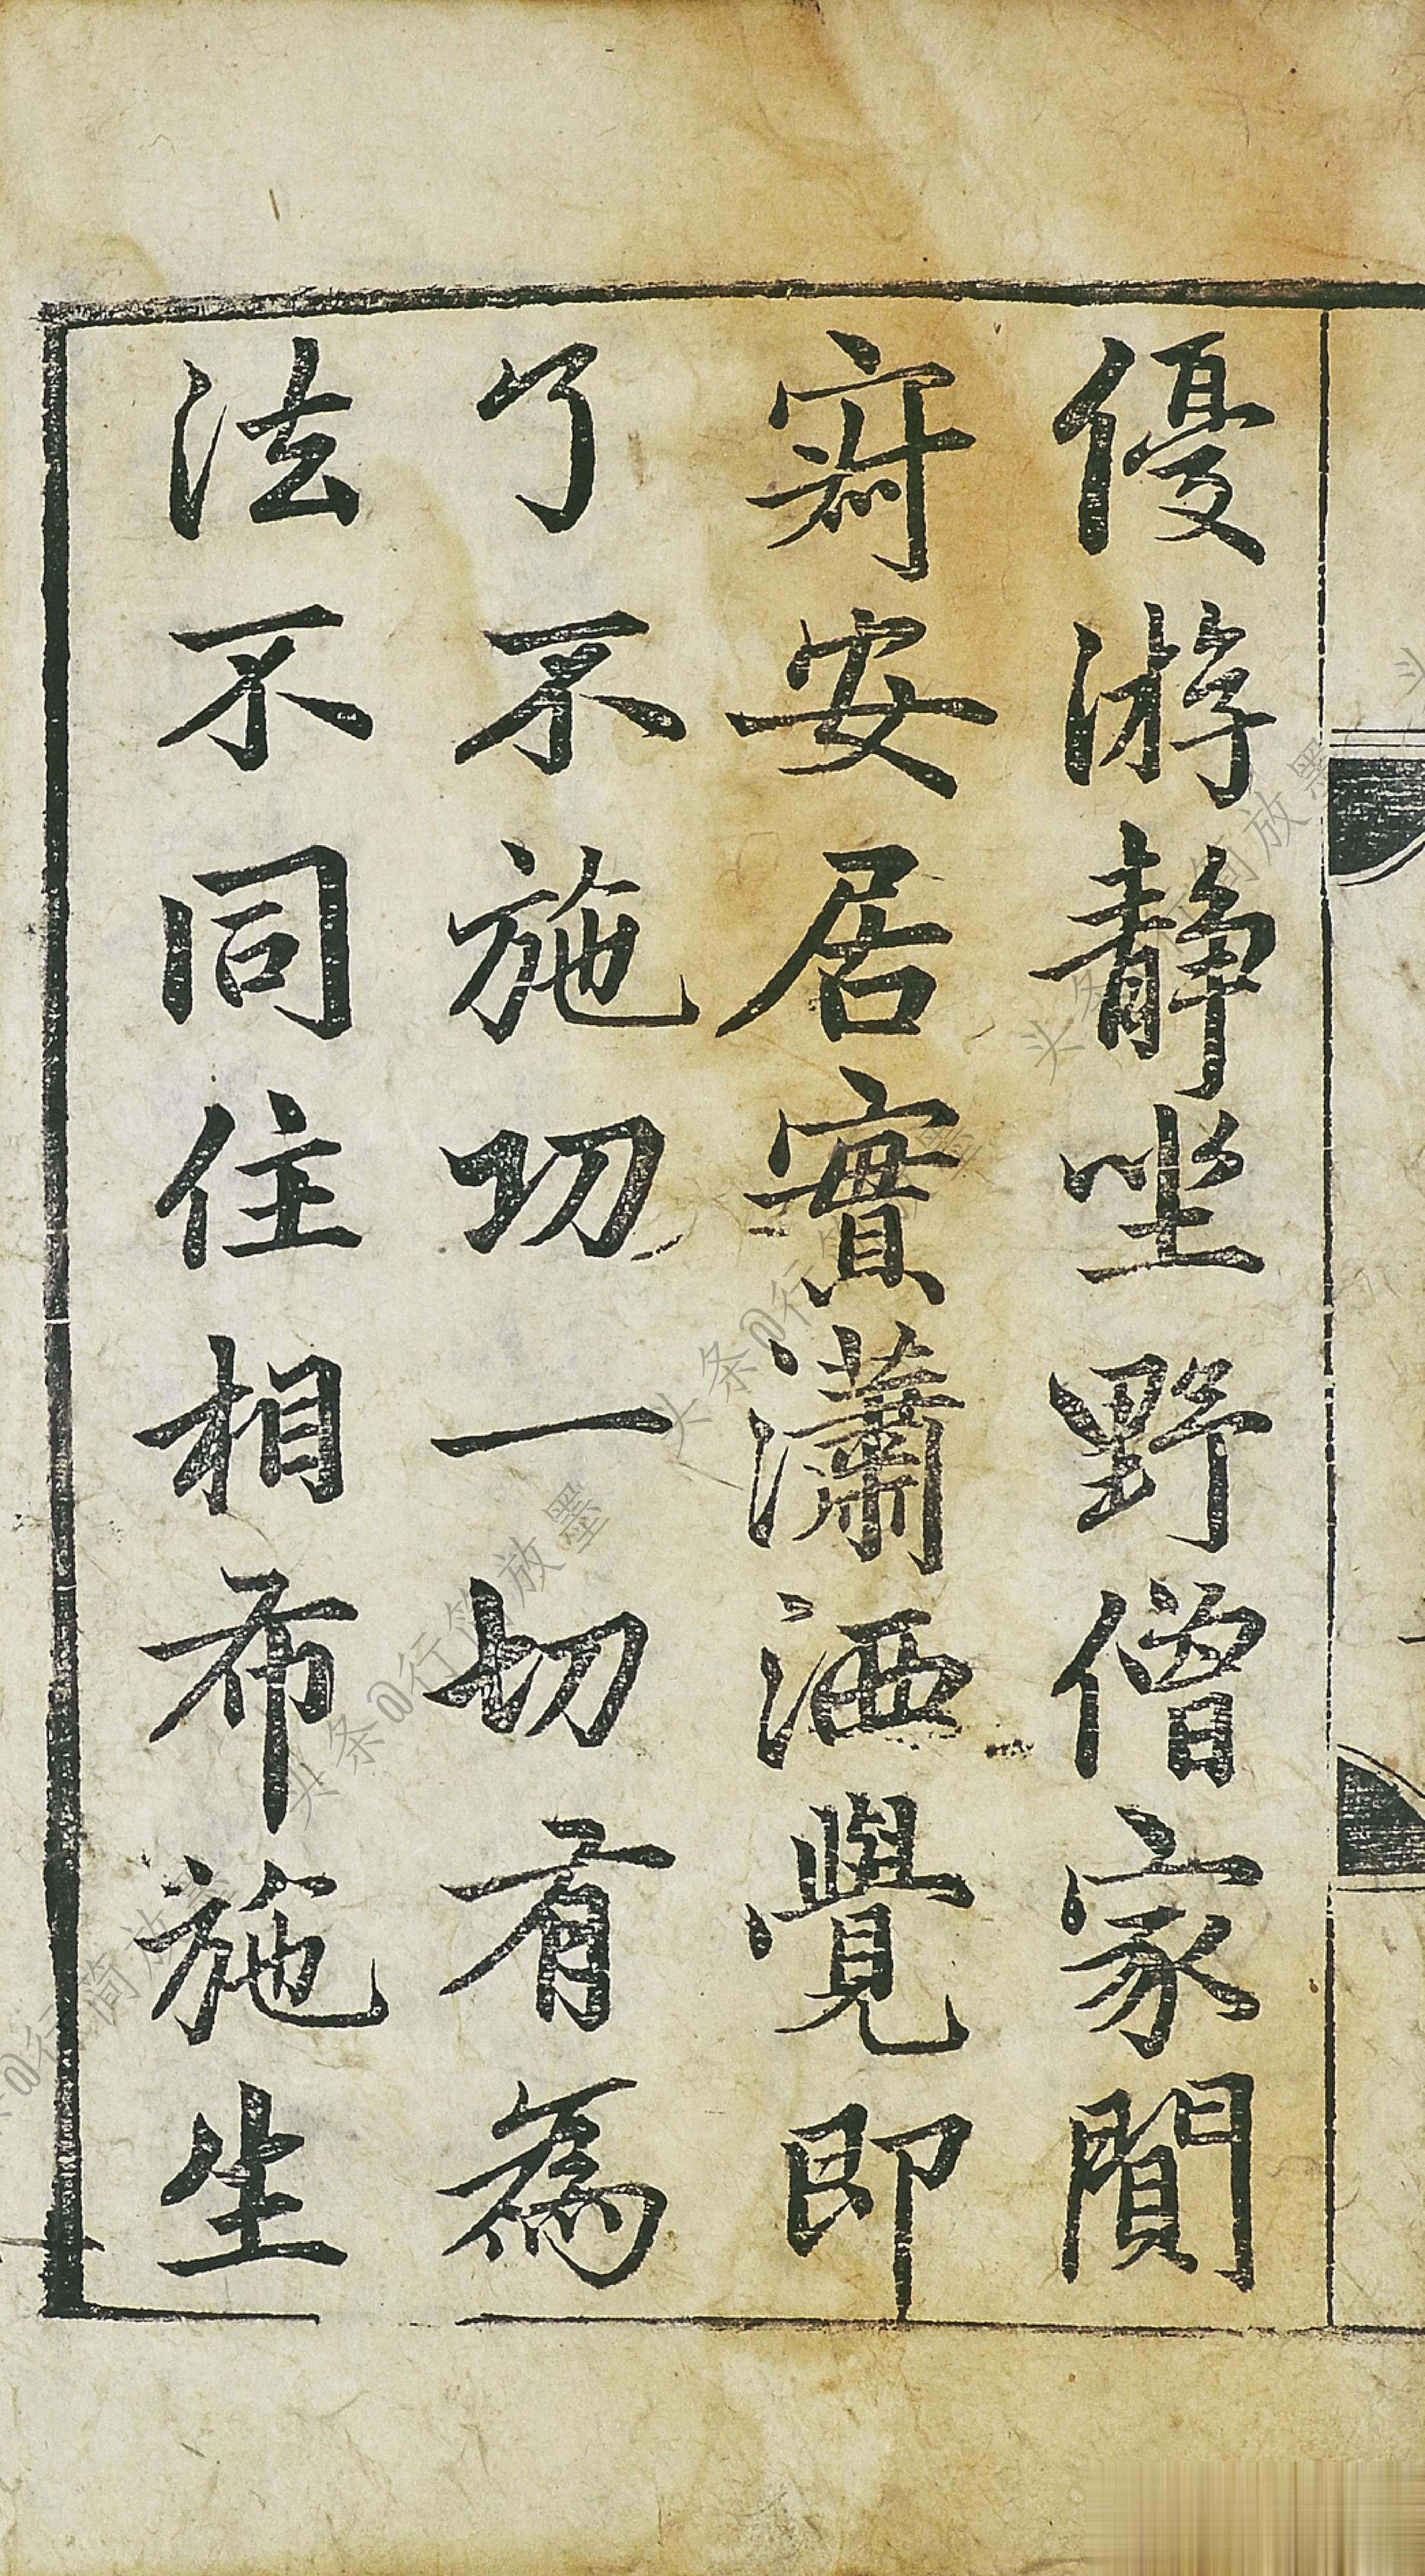 優游静坐野僧家閴
㝥安居實瀟洒覺即
了不施功一切有為
法不同住相布施生
头条@行简放墨
头条@行简放墨
头条@行简放墨